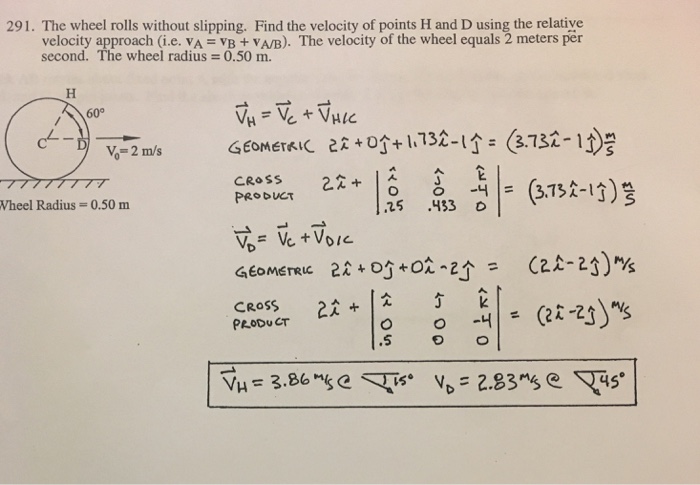 291. The wheel rolls without slipping. Find the velocity of points H and D using the relative
velocity approach (i.e. vA = vB + vA/B). The velocity of the wheel equals 2 meters per
second. The wheel radius = 0.50 m.
H
60°
C
D
V₀= 2 m/s
Wheel Radius = 0.50 m
V⃗H = V⃗C + V⃗H/C
GEOMETRIC 2î + 0ĵ + 1.73î - 1ĵ = (3.73î - 1ĵ) m/s
CROSS PRODUCT 2î + | î ĵ k̂ | = (3.73î - 1ĵ) m/s
0 0 -4
.25 .433 0
V⃗D = V⃗C + V⃗D/C
GEOMETRIC 2î + 0ĵ + 0î - 2ĵ = (2î - 2ĵ) m/s
CROSS PRODUCT 2î + | î ĵ k̂ | = (2î - 2ĵ) m/s
0 0 -4
.5 0 0
V⃗H = 3.86 m/s @ 15° VD = 2.83 m/s @ 45°